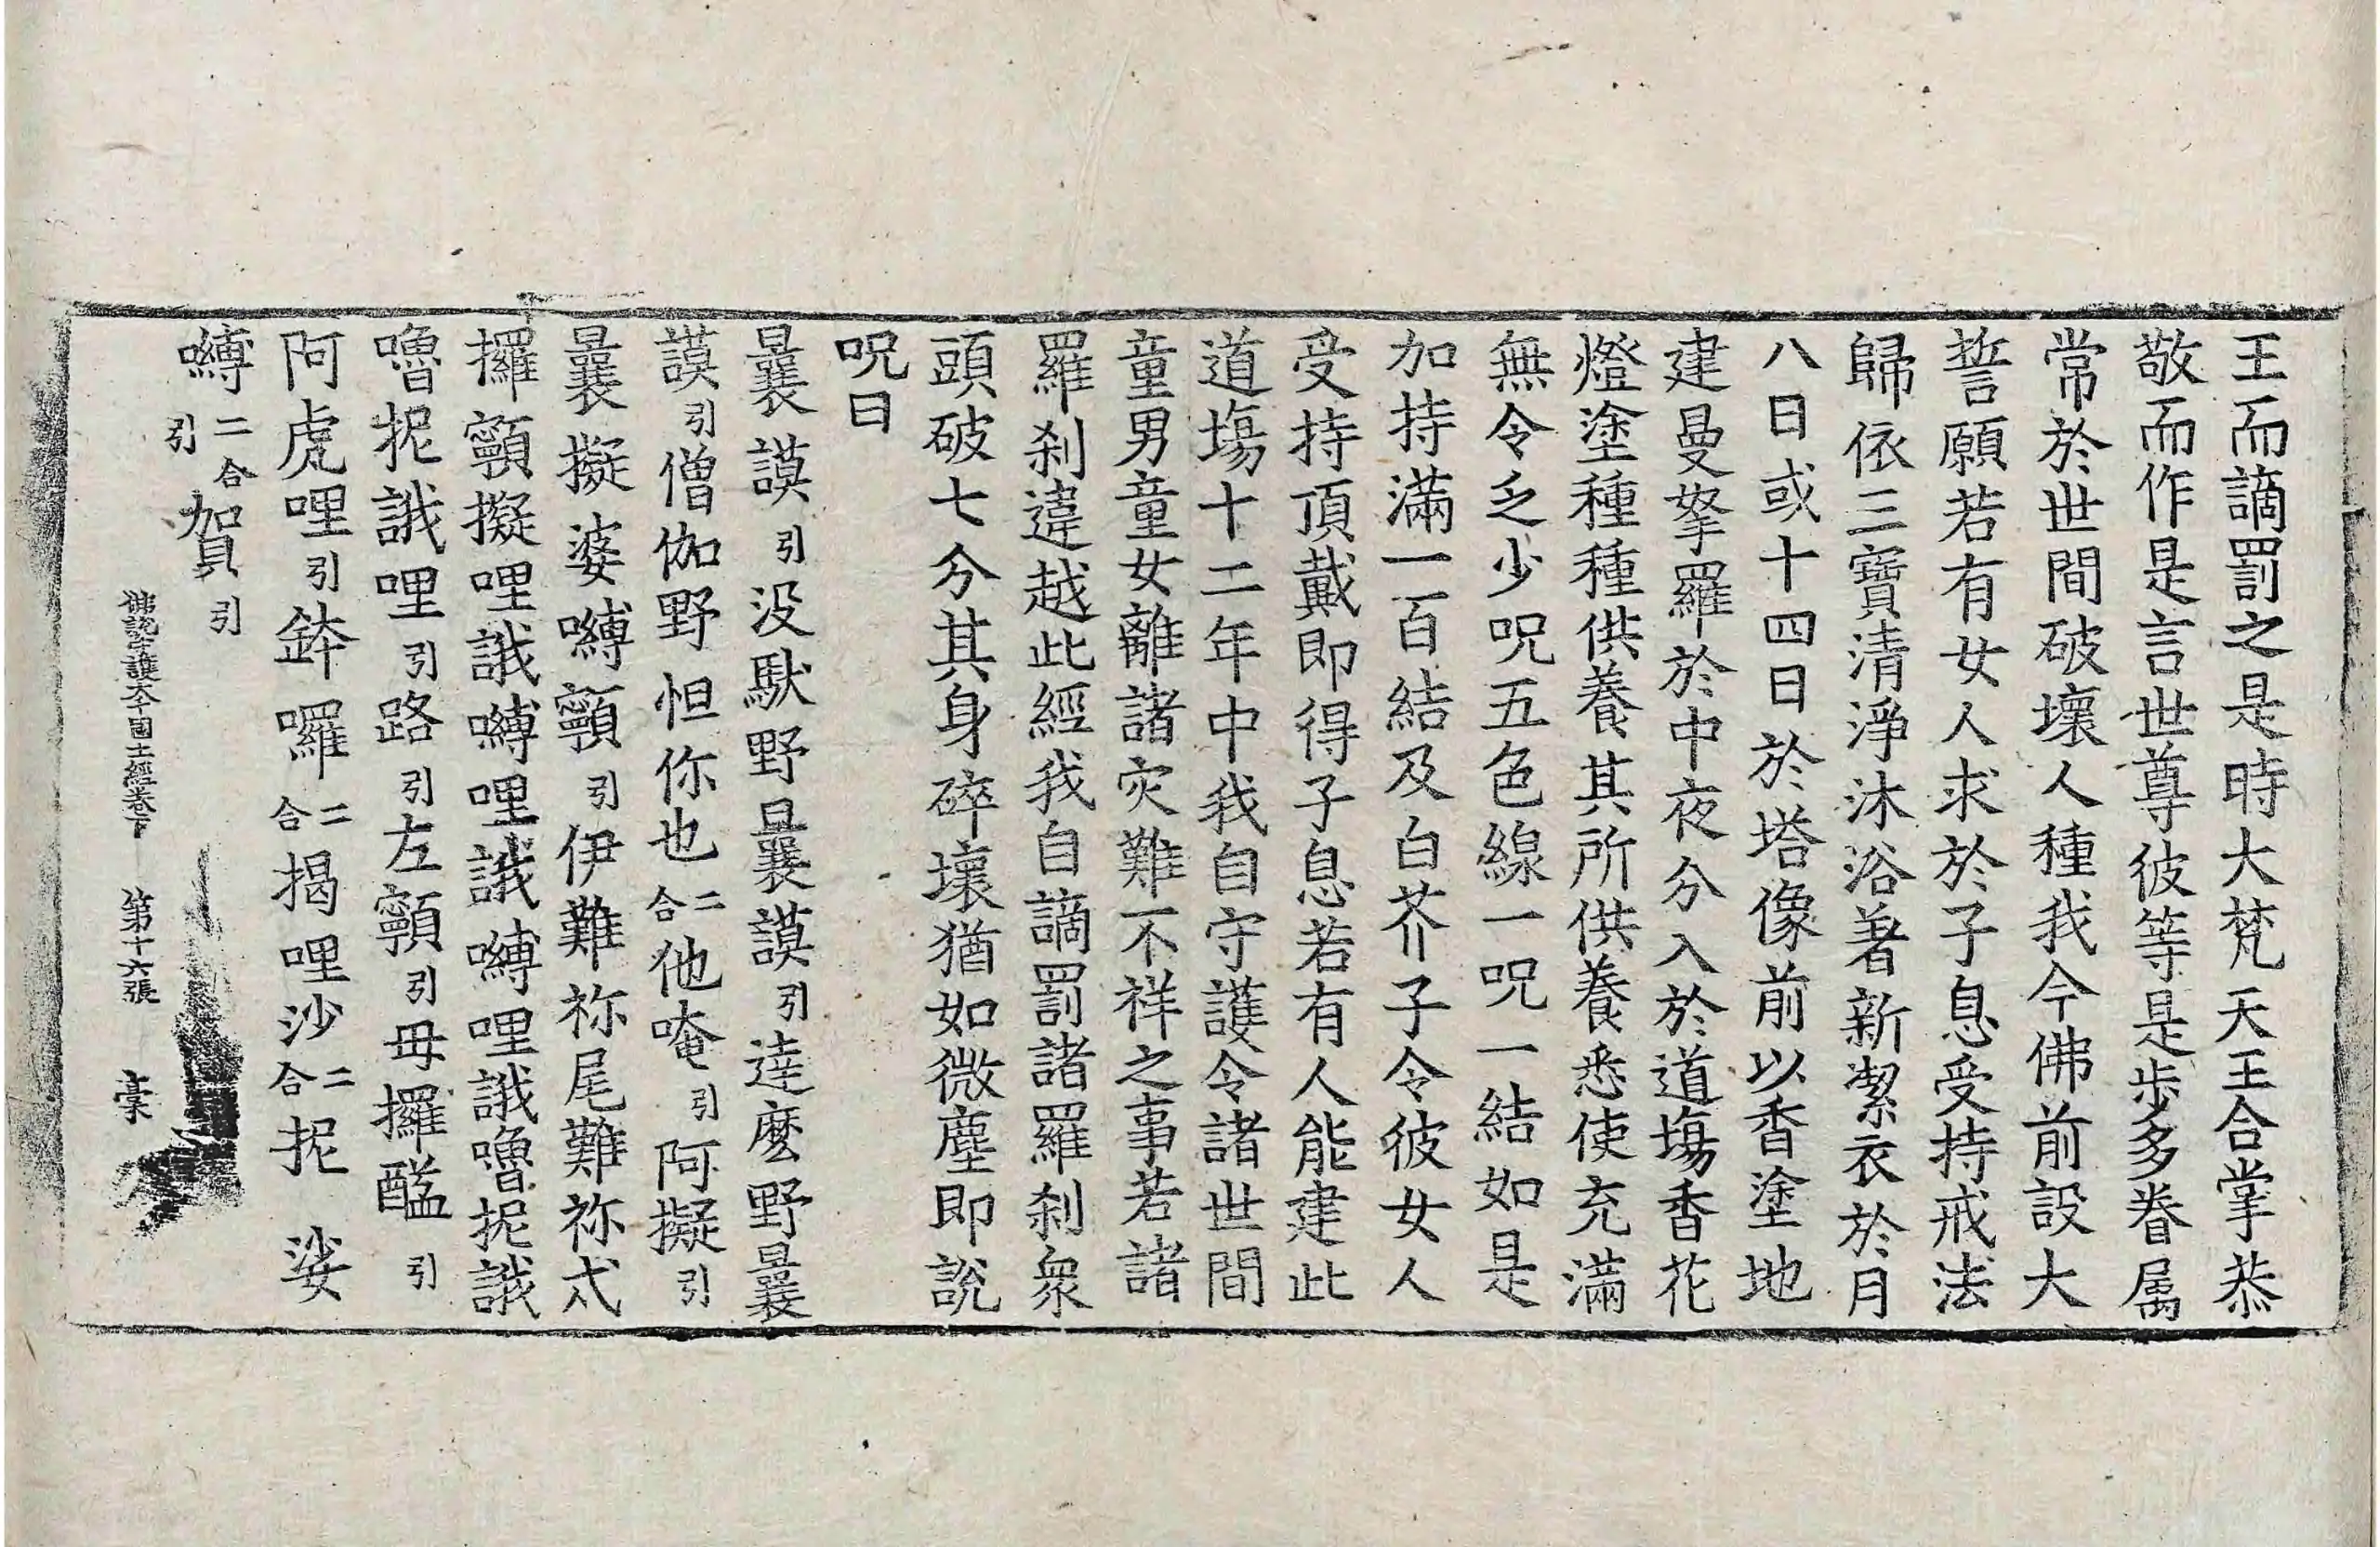 王而謫罰之是時大梵天王合掌恭
敬而作是言世尊彼等是步多眷属
常於世間破壞人種我今佛前設大
誓願若有女人求於子息受持戒法
歸依三寶清淨沐浴著新潔衣於月
八日或十四日於塔像前以香塗地
建曼拏羅於中夜分入於道塲香花
燈塗種種供養其所供養悉使充滿
無令乏少呪五色線一呪一結如是
加持滿一百結及白芥子令彼女人
受持頂戴即得子息若有人能建此
道塲十二年中我自守護令諸世間
童男童女離諸灾難不祥之事若諸
羅刹違越此經我自謫罰諸羅刹衆
頭破七分其身碎壞猶如微塵即說
呪曰
曩謨引没馱野曩謨引達麽野曩
謨引僧伽野怛你也二合他唵引阿擬引
曩擬婆嚩顎引伊難祢尾難祢忒
攞顎擬哩誐嚩哩誐嚩哩誐嚕抳誐
嚕抳誐哩引路引左顎引毋攞醯引
阿虎哩引鉢囉二合揭哩沙二合抳娑
嚩二合引賀引
佛說守護大千國土經卷下 第十六張 槀